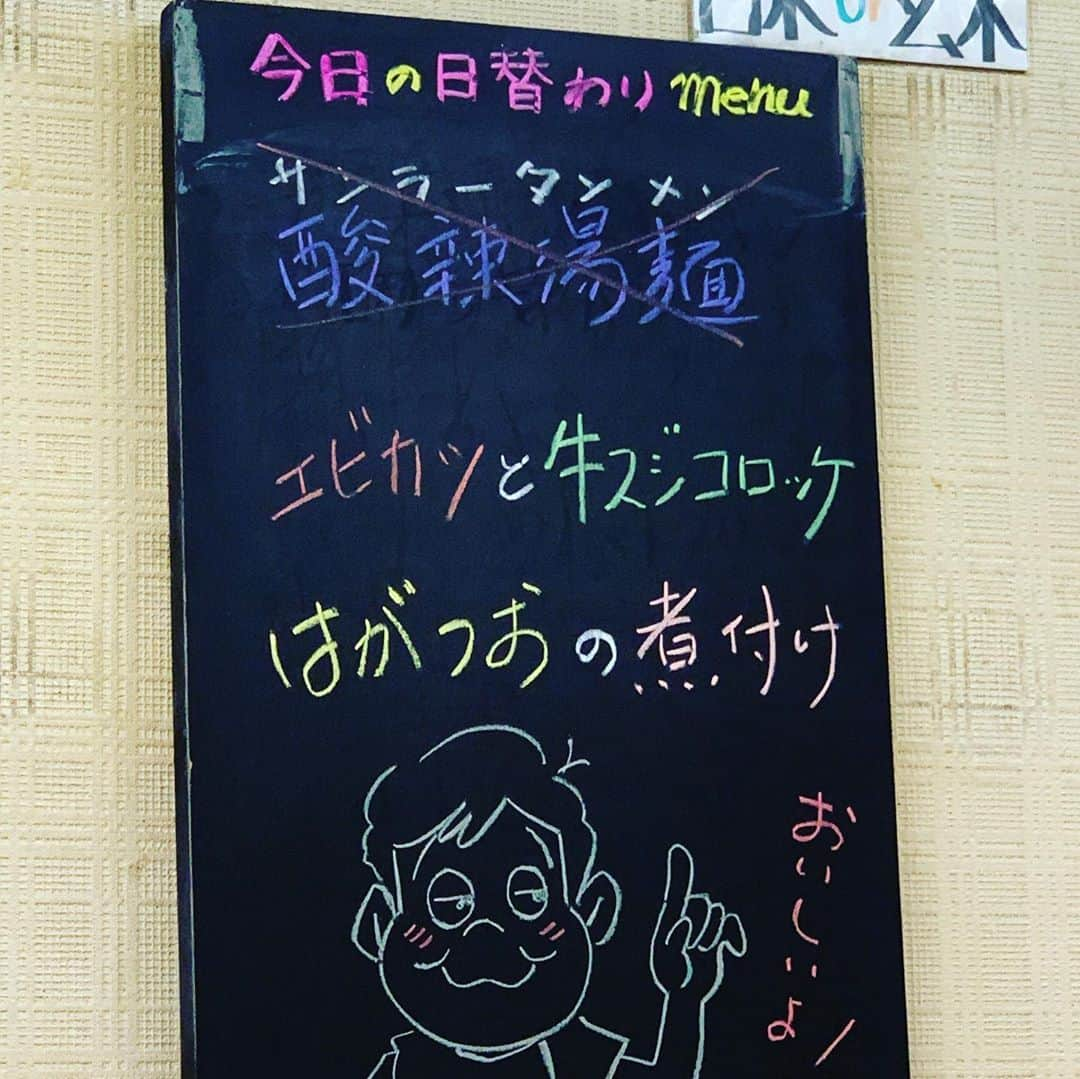 今日の日替わりmenu
サンラータンメン
酸辣湯麺
エビカツと牛スジコロッケ
はがつおの煮付け
おいしいよ!